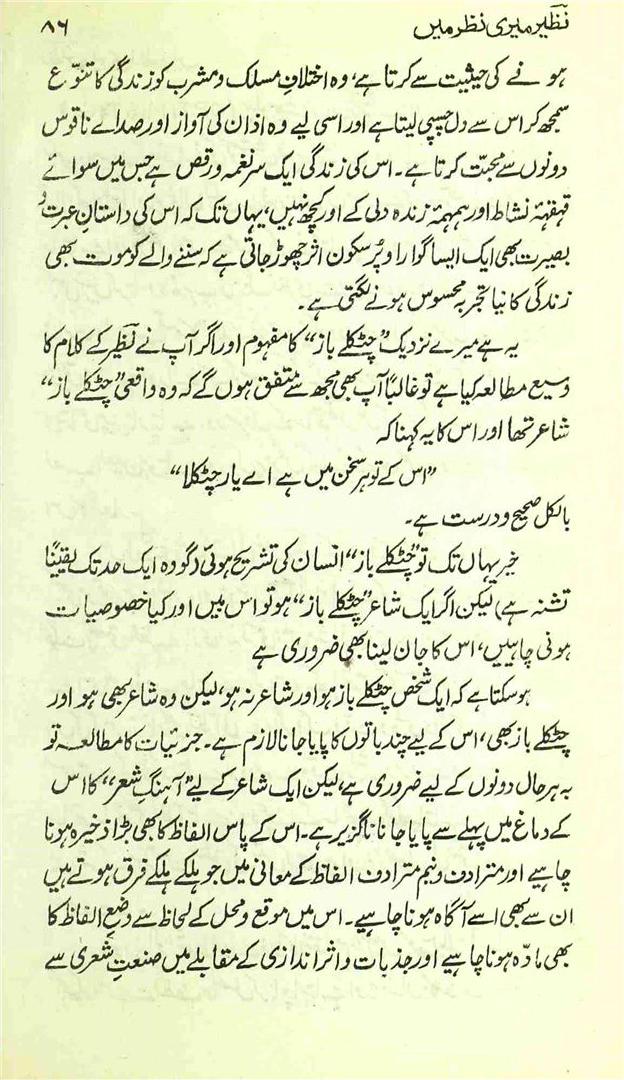 نظیر میری نظر میں
۸۶
ہونے کی حیثیت سے کرتا ہے، وہ اختلافِ مسلک و مشرب کو زندگی کا تنوّع
سمجھ کر اس سے دل چسپی لیتا ہے اور اسی لیے وہ اذان کی آواز اور صداے ناقوس
دونوں سے محبّت کرتا ہے۔ اس کی زندگی ایک سر نغمہ و رقص ہے جس میں سوائے
قہقہۂ نشاط اور ہمہمۂ زندہ دلی کے اور کچھ نہیں، یہاں تک کہ اس کی داستانِ عبرت و
بصیرت بھی ایک ایسا گوارا و پُر سکون اثر چھوڑ جاتی ہے کہ سننے والے کو موت بھی
زندگی کا نیا تجربہ محسوس ہونے لگتی ہے۔
یہ ہے میرے نزدیک ”چٹکلے باز“ کا مفہوم اور اگر آپ نے نظیر کے کلام کا
وسیع مطالعہ کیا ہے تو غالباً آپ بھی مجھ سے متفق ہوں گے کہ وہ واقعی ”چٹکلے باز“
شاعر تھا اور اس کا یہ کہنا کہ
”اس کے تو ہر سخن میں ہے اے یار چٹکلا“
بالکل صحیح و درست ہے۔
خیر یہاں تک تو ”چٹکلے باز“ انسان کی تشریح ہوئی (گو وہ ایک حد تک یقینًا
تشنہ ہے) لیکن اگر ایک شاعر ”چٹکلے باز“ ہو تو اس میں اور کیا خصوصیات
ہونی چاہییں، اس کا جان لینا بھی ضروری ہے
ہو سکتا ہے کہ ایک شخص چٹکلے باز ہو اور شاعر نہ ہو، لیکن وہ شاعر بھی ہو اور
چٹکلے باز بھی، اس کے لیے چند باتوں کا پایا جانا لازم ہے۔ جزئیات کا مطالعہ تو
بہ ہر حال دونوں کے لیے ضروری ہے، لیکن ایک شاعر کے لیے ”آہنگِ شعر“ کا اس
کے دماغ میں پہلے سے پایا جانا ناگزیر ہے۔ اس کے پاس الفاظ کا بھی بڑا ذخیرہ ہونا
چاہیے اور مترادف و نیم مترادف الفاظ کے معانی میں جو ہلکے ہلکے فرق ہوتے ہیں
ان سے بھی اسے آگاہ ہونا چاہیے۔ اس میں موقع و محل کے لحاظ سے وضعِ الفاظ کا
بھی مادّہ ہونا چاہیے اور جذبات و اثر اندازی کے مقابلے میں صنعتِ شعری سے